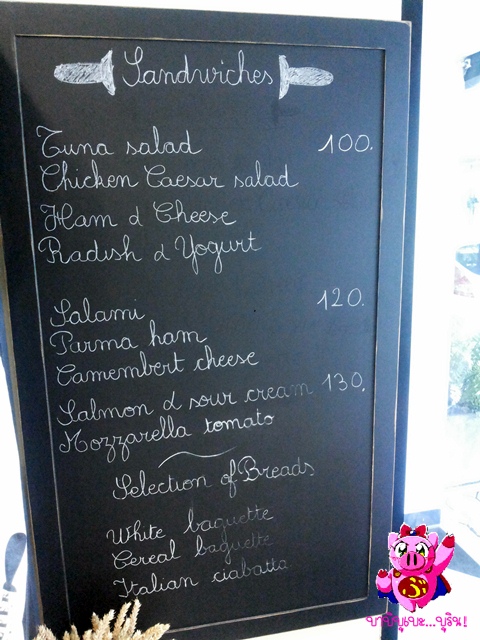 Sandwiches
Tuna salad 100.
Chicken Caesar salad
Ham & Cheese
Radish & Yogurt
Salami 120.
Parma ham
Camembert cheese
Salmon & sour cream 130.
Mozzarella tomato
Selection of Breads
White baguette
Cereal baguette
Italian ciabatta